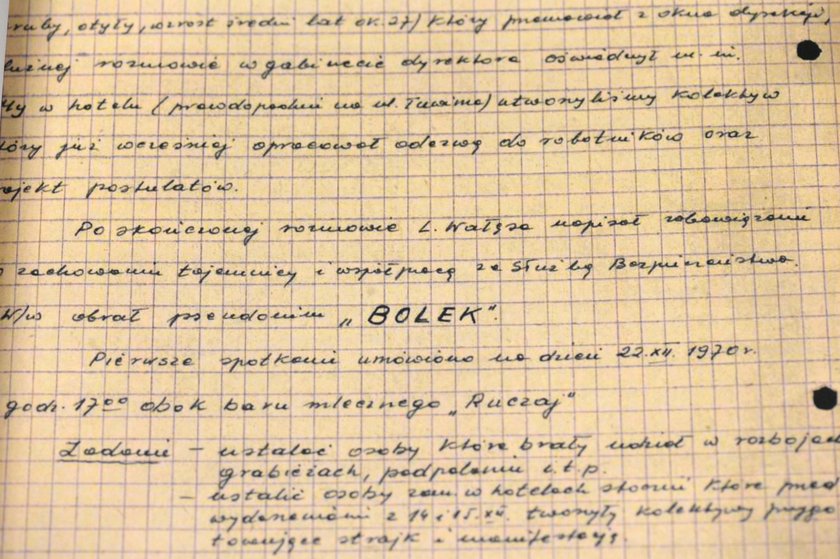 ruby, otyły, wzrost średni lat ok. 27) który przemawiał z okna dyrekcji,
luźnej rozmowie w gabinecie dyrektora oświadczył m. in.
w hotelu (prawdopodobnie na ul. Tuwima) utworzyliśmy kolektyw
tóry już wcześniej opracował odezwę do robotników oraz
ojekt postulatów.
Po skończonej rozmowie L. Wałęsa napisał zobowiązanie
o zachowaniu tajemnicy i współpracy ze Służbą Bezpieczeństwa.
W/w obrał pseudonim „BOLEK”.
Pierwsze spotkanie umówiono na dzień 22.XII. 1970 r.
godz. 17⁰⁰ obok baru mlecznego „Ruczaj”
Zadanie – ustalać osoby które brały udział w rozbojach
grabieżach, podpaleniu i.t.p.
– ustalić osoby zam. w hotelach stoczni które przed
wydarzeniami z 14 i 15.XII. tworzyły kolektywy przygo
towujące strajk i manifestację.